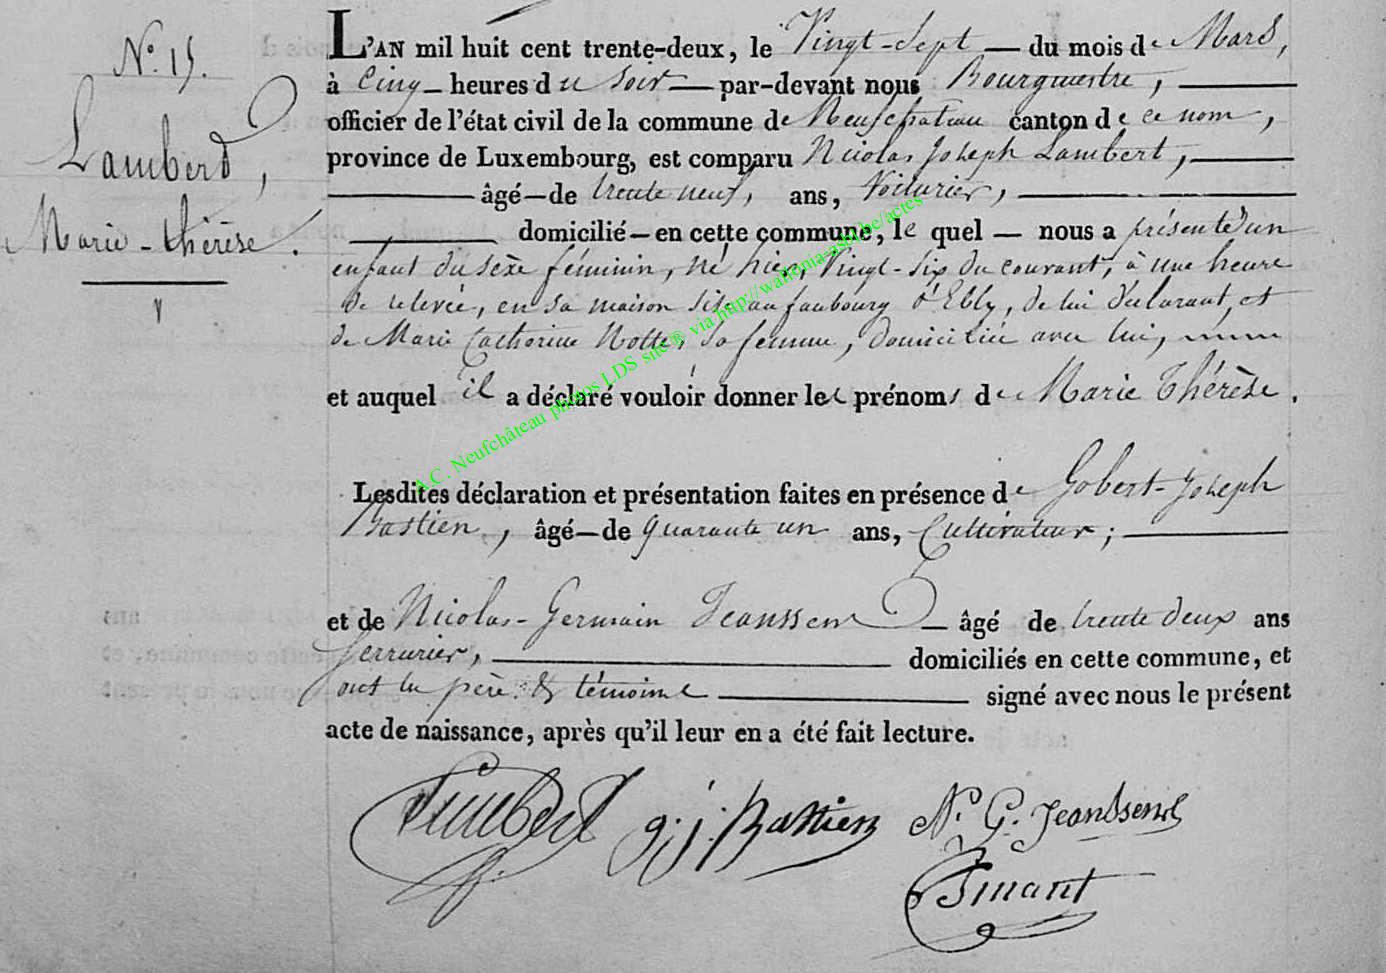 N.º 15.
Lambert,
Marie-thérèse.
L'AN mil huit cent trente-deux, le Vingt-Sept — du mois de Mars,
à Cinq heures du soir — par-devant nous Bourgmestre,
officier de l'état civil de la commune de Neufchateau canton de ce nom,
province de Luxembourg, est comparu Nicolas Joseph Lambert,
âgé — de trente neuf, ans, Voiturier,
domicilié — en cette commune, le quel — nous a présenté d'un
enfant du sèxe féminin, né hier, Vingt-Six du courant, à une heure
de relevée, en sa maison sise au faubourg d'Ebly, de lui déclarant, et
de Marie Catherine Nolte, sa femme, domiciliée avec lui,
et auquel il a déclaré vouloir donner les prénoms de Marie Thérèse.
Lesdites déclaration et présentation faites en présence de Gobert-Joseph
Bastien, âgé — de quarante un ans, Cultivateur;
et de Nicolas-Germain Jeanssen — âgé de trente deux ans
Serrurier, domiciliés en cette commune, et
ont les père & témoins signé avec nous le présent
acte de naissance, après qu'il leur en a été fait lecture.
Lambert g. j. Bastien N. G. Jeanssens
A.C. Neufchâteau photos LDS site® via http://wallonia-asbl.be/actes